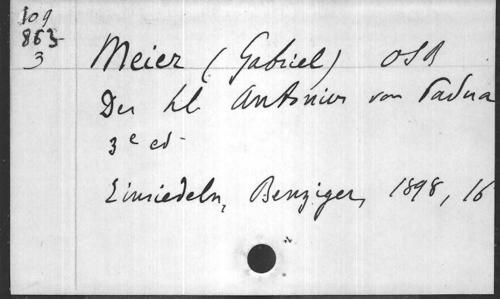 109
863
3
Meier (Gabriel) OSB
Der hl Antonius von Padua
3e ed
Einsiedeln, Benziger, 1898, 16